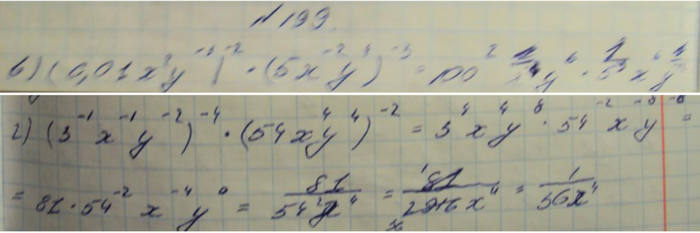 № 199.
в) (0,01x²y⁻³)⁻² · (5x⁻²y⁴)⁻³ = 100² y⁶ · 1/5³ x⁶
г) (3⁻¹x⁻¹y⁻²)⁻⁴ · (54x⁴y⁴)⁻² = 3⁴x⁴y⁸ · 54⁻²x⁻⁸y⁻⁸ =
= 81 · 54⁻² x⁻⁴ y⁰ = 81/54²x⁴ = 81/2916x⁴ = 1/36x⁴